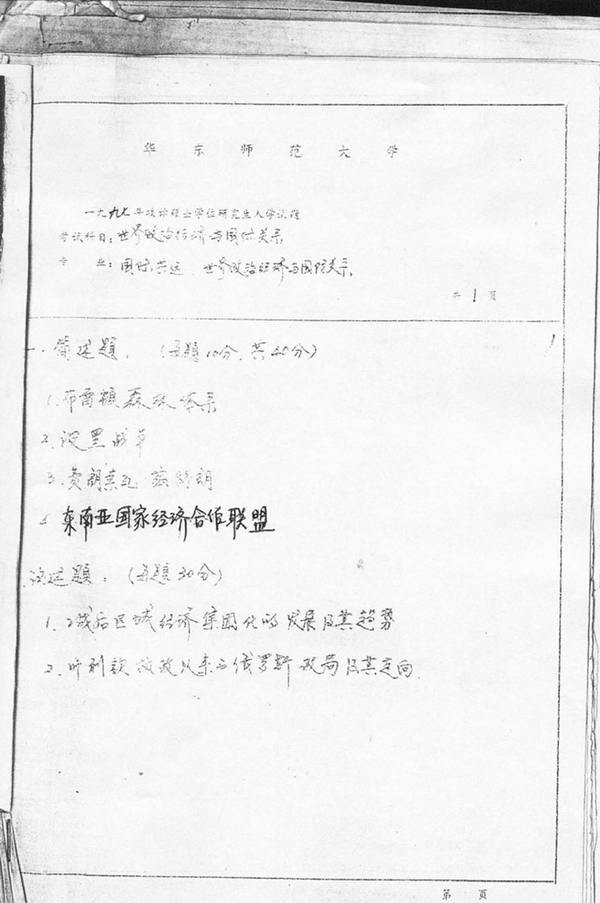 华东师范大学
一九九七年攻读硕士学位研究生入学试题
考试科目：世界政治经济与国际关系
专业：国际共运、世界政治经济与国际关系
共1页
一.简述题：（每题10分，共40分）
1.布雷顿森林体系
2.波黑战争
3.
4.东南亚国家经济合作联盟
论述题：（每题30分）
1.2战后区域经济集团化的发展及其趋势
2.叶利钦执政以来的俄罗斯政局及其走向.
第 页